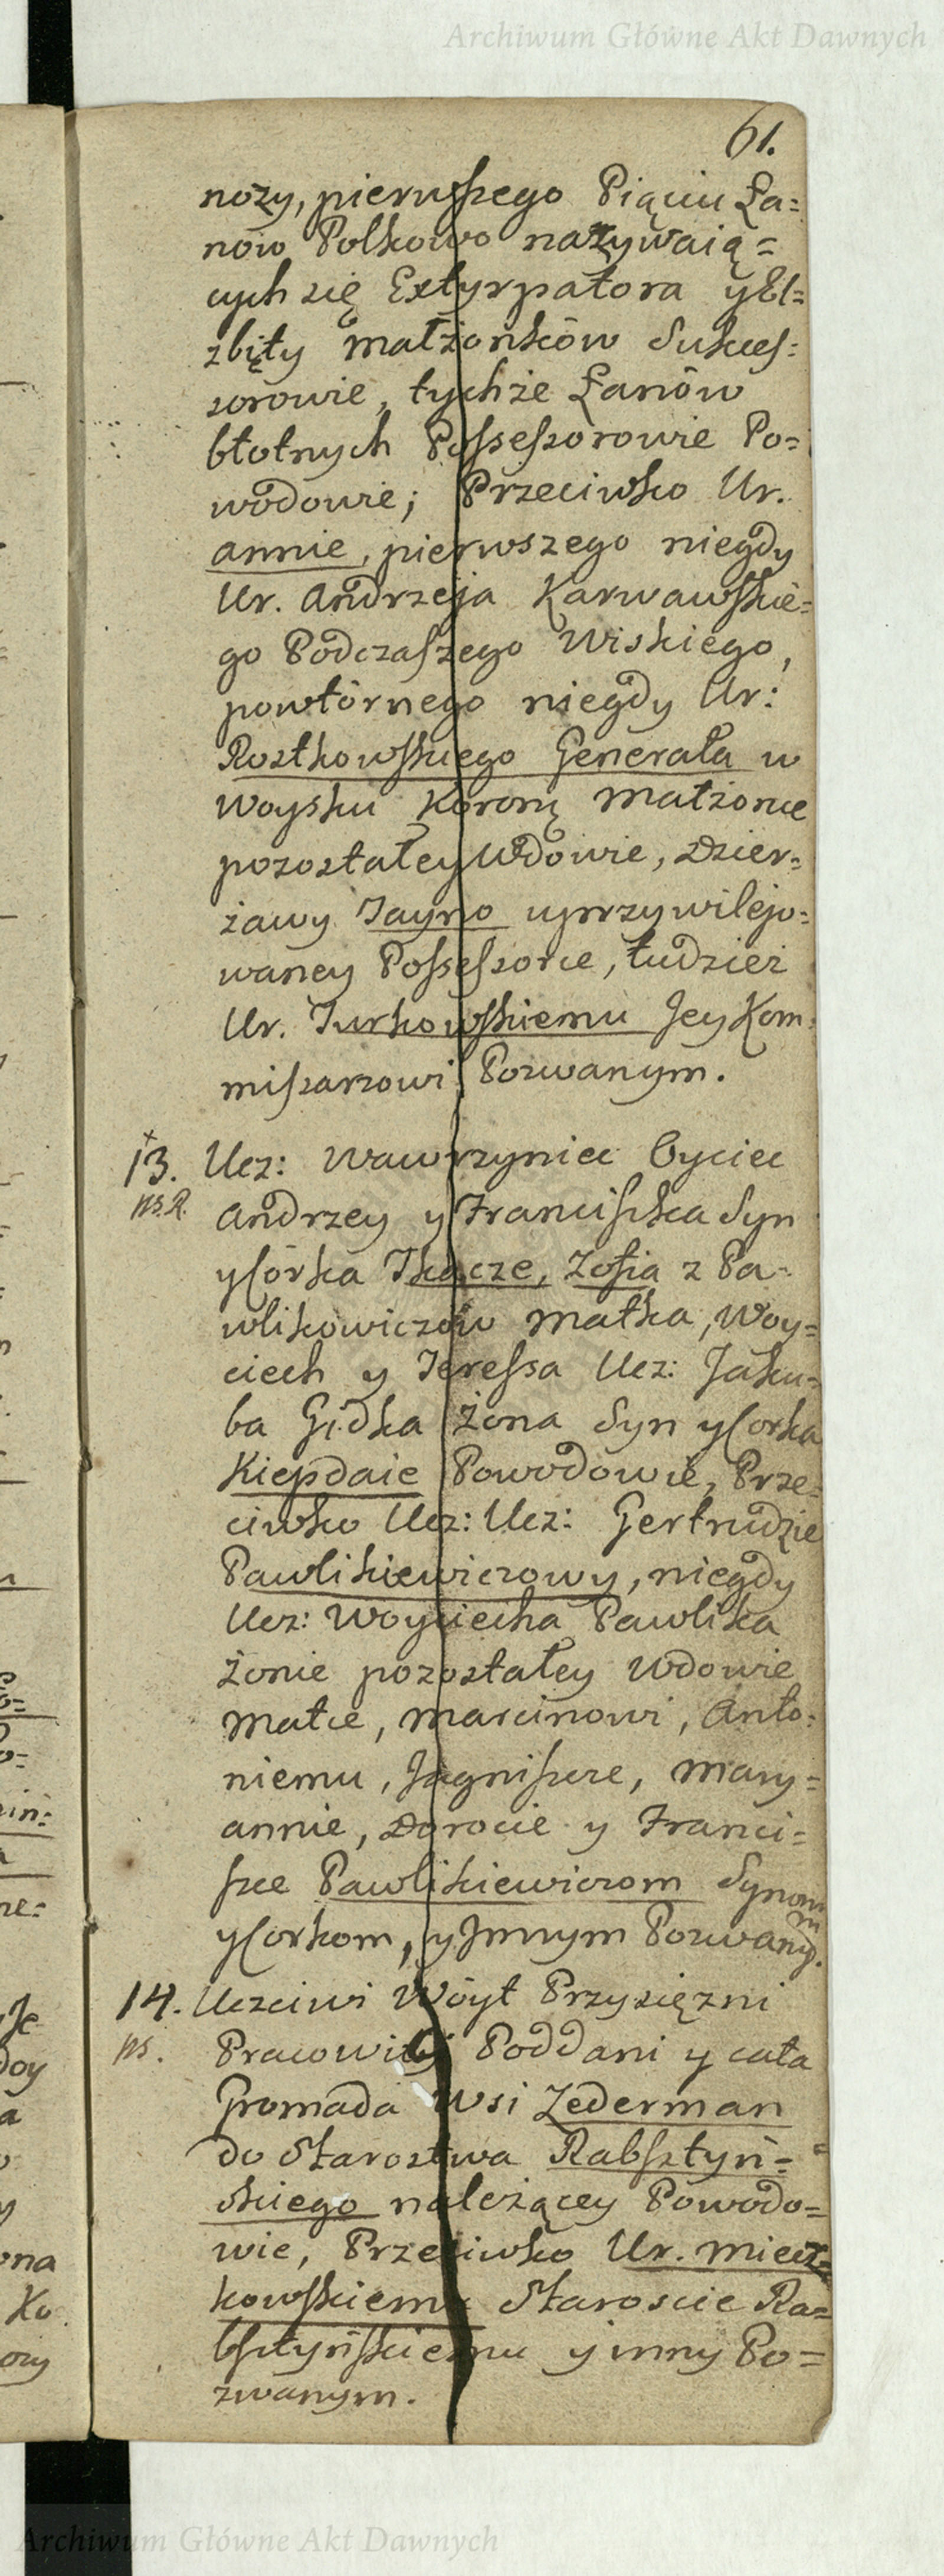 Archiwum Główne Akt Dawnych
61.
nozy, pierwszego Piąciu Ła=
now Polkowo nazywaią=
cych się Extyrpatora y El=
zbity małżonków Sukces=
sorowie, tychże Łanów
błotnych Possessorowie Po=
wodowie; Przeciwko Ur.
annie, pierwszego niegdy
Ur. Andrzeja Karwawskie=
go Podczaszego Wiskiego,
powtórnego niegdy Ur:
Rostkowskiego Generała w
Woysku Koronę Małżonce
pozostałey Wdowie, Dzier=
żawy Tayno uprzywilejo=
waney Possessorce, tudziez
Ur. Turkowskiemu Jey Kom=
missarzowi Pozwanym.
13. Ucz: Wawrzyniec Oyciec
ps. R. Andrzey y Franciszka Syn
y Córka Tkacze, Zofia z Pa=
wlikowiczów Matka, Woy=
ciech y Teressa Ucz: Jaku=
ba Gidka Żona Syn y Corka
Kiepdaie Powodowie, Prze=
ciwko Ucz: Ucz: Gertrudzie
Pawlikiewiczowy, niegdy
Ucz: Woyciecha Pawlika
Żonie pozostałey Wdowie
Matce, Marcinowi, Anto=
niemu, Jagniszce, Mary=
annie, Dorocie y Franci=
szce Pawlikiewiczom Synom
y Corkom, y Jnnym Pozwanym.
14. Uczciwi Wóyt Przysięzni
ps. Pracowity Poddani y cała
Gromada Wsi Zederman
do Starostwa Rabsztyń=
skiego należącey Powodo=
wie, Przeciwko Ur. Miecz=
kowskiemu Staroscie Ra=
bsztyńskiemu y inny Po=
zwanym.
Archiwum Główne Akt Dawnych